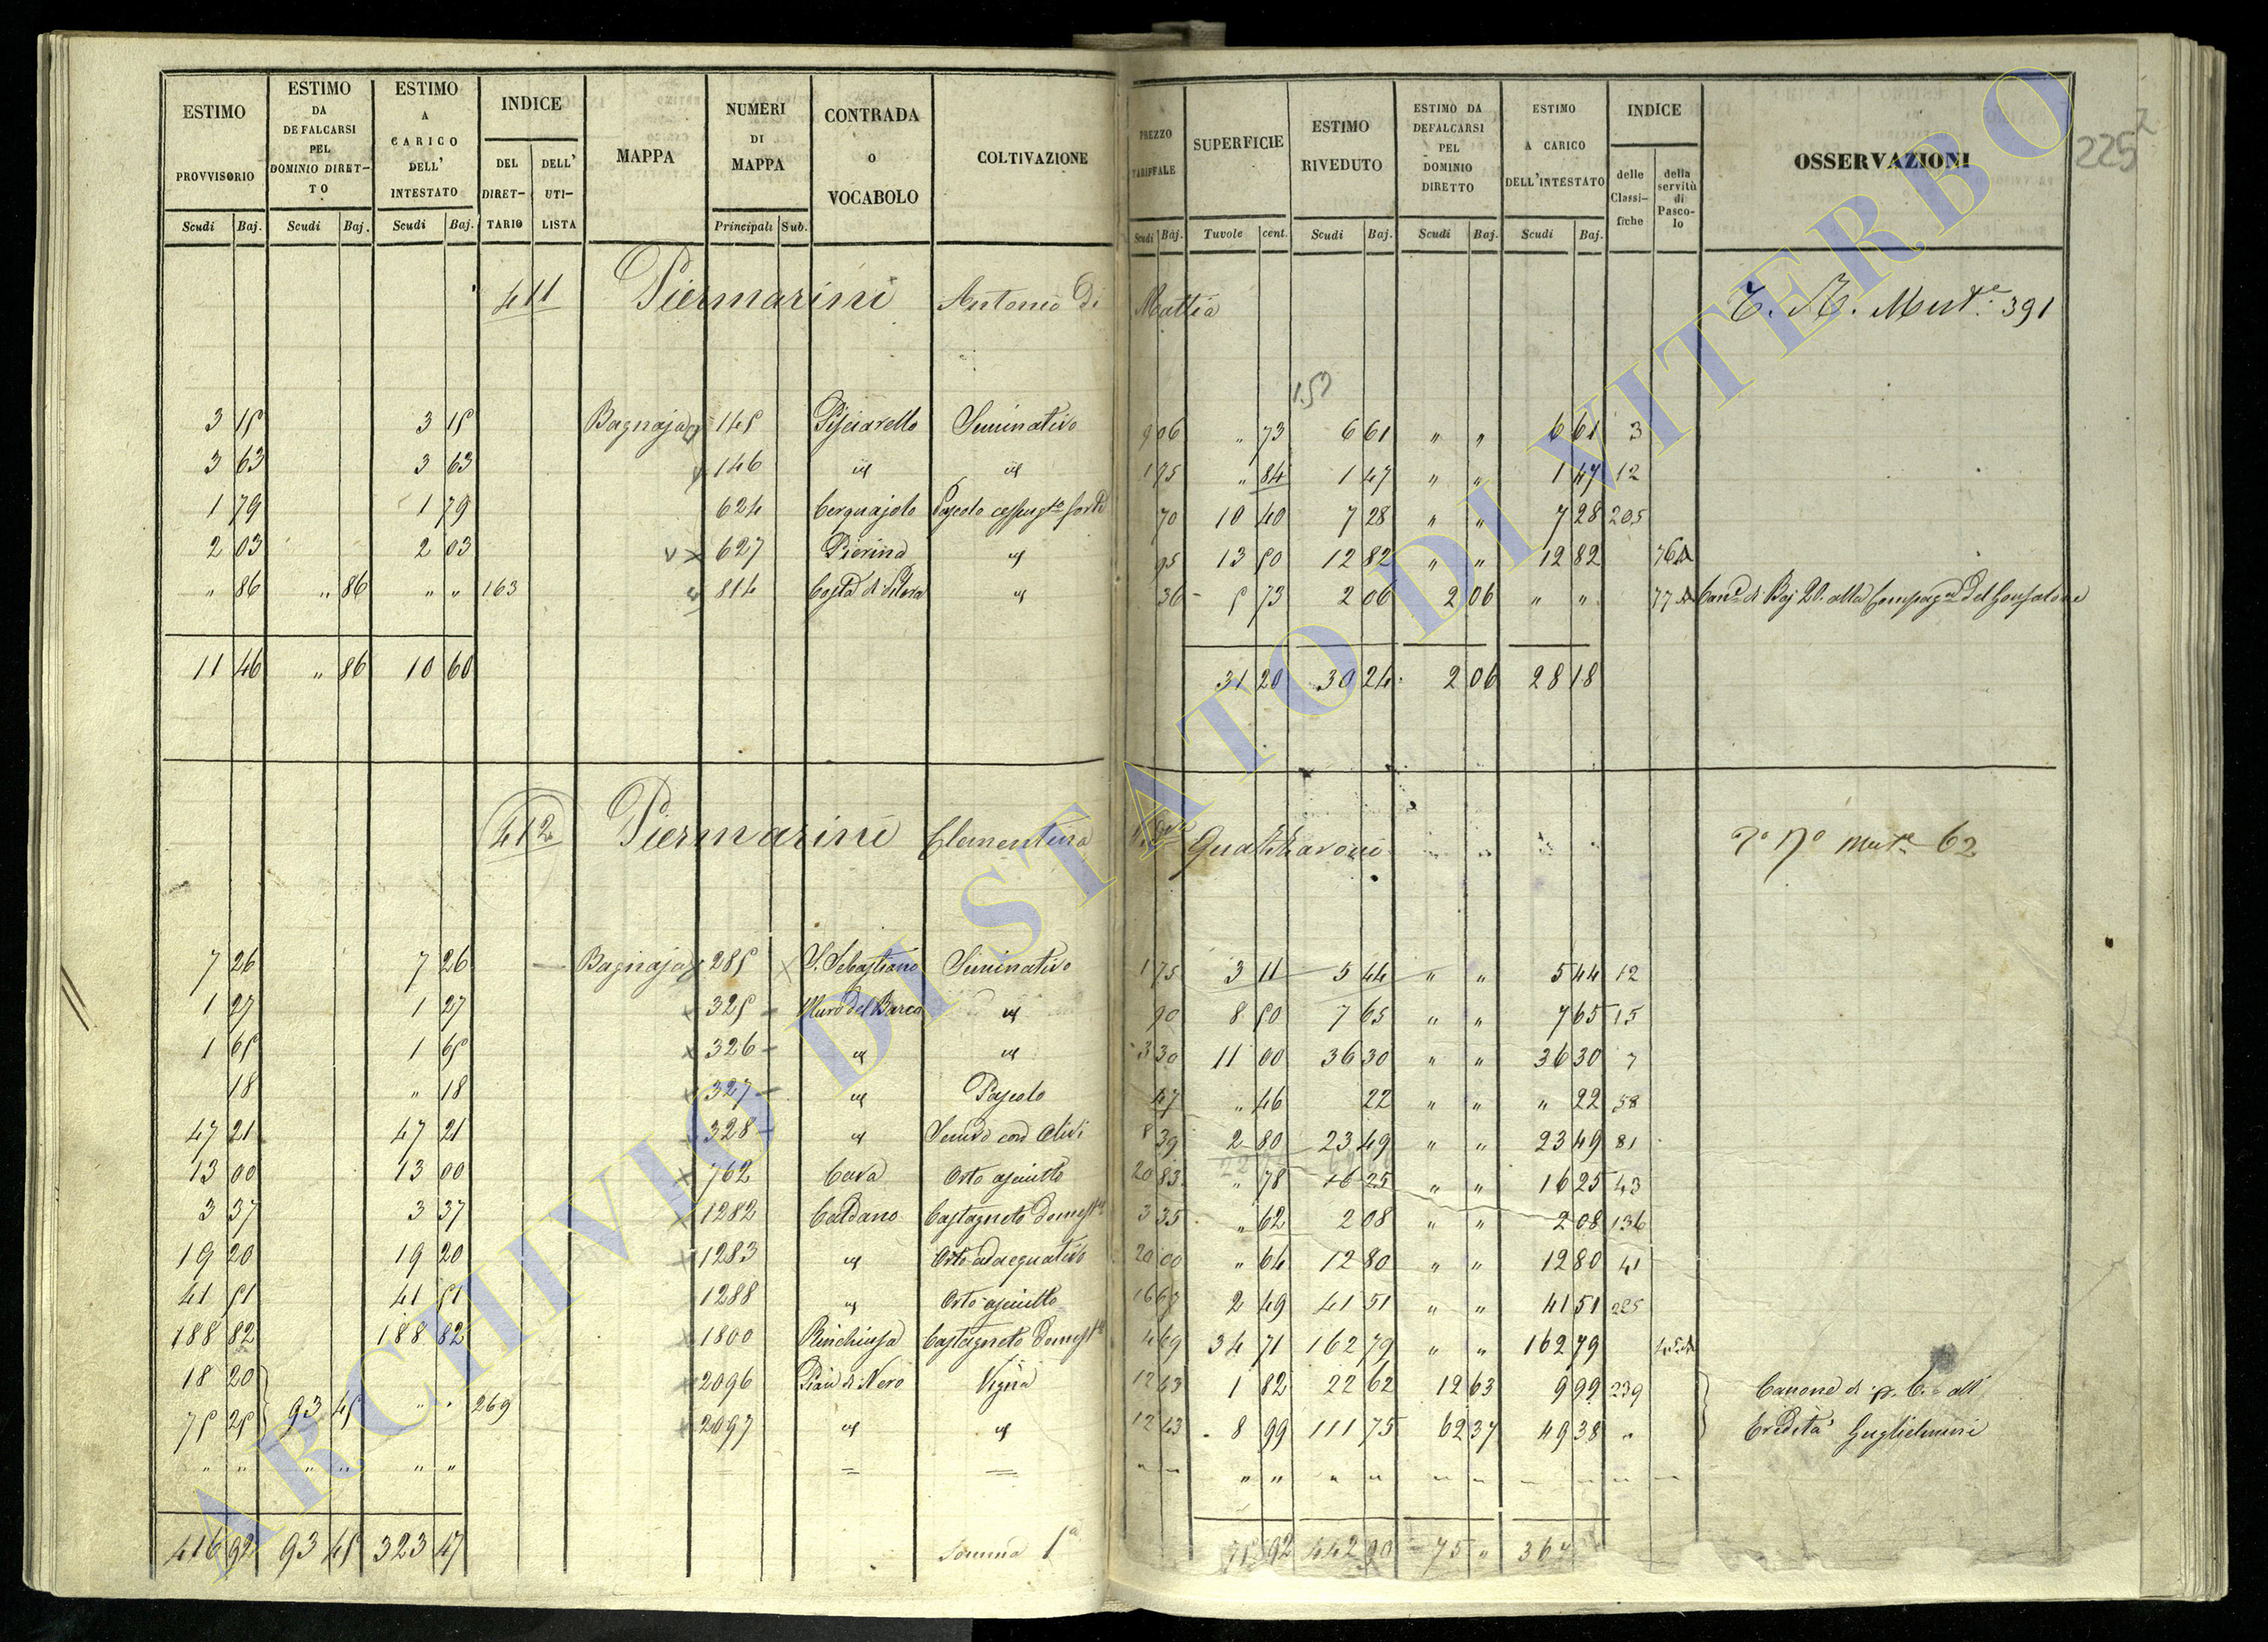 ESTIMO PROVVISORIO Scudi Baj. | ESTIMO DA DEFALCARSI PEL DOMINIO DIRET-TO Scudi Baj. | ESTIMO A CARICO DELL' INTESTATO Scudi Baj. | INDICE DEL DIRET-TARIO | DELL' UTI-LISTA | MAPPA | NUMERI DI MAPPA Principali Sub. | CONTRADA O VOCABOLO | COLTIVAZIONE | PREZZO TARIFFALE Scudi Baj. | SUPERFICIE Tavole cent. | ESTIMO RIVEDUTO Scudi Baj. | ESTIMO DA DEFALCARSI PEL DOMINIO DIRETTO Scudi Baj. | ESTIMO A CARICO DELL'INTESTATO Scudi Baj. | INDICE delle Classi-fiche | della servitù di Pasco-lo | OSSERVAZIONI
225
411 Piermarini Antonio di Mattia
391
3 15 | 3 15 | Bagnaja | 145 | Pisciarello | Seminativo | 9 06 | " 73 | 6 61 | " " | 6 61 | 3
3 63 | 3 63 | 146 | id | id | 1 75 | " 84 | 1 47 | " " | 1 47 | 12
1 79 | 1 79 | 624 | Cerquajolo | Pascolo | 70 | 10 40 | 7 28 | " " | 7 28 | 205
2 03 | 2 03 | 627 | Pierina | id | 95 | 13 50 | 12 82 | " " | 12 82 | 76
" 86 | " 86 | " " | 163 | 814 | Costa di | id | 36 | 5 73 | 2 06 | 2 06 | " " | 77 | Can.e di Baj 20. alla Compag.a del Gonfalone
11 46 | " 86 | 10 60 | 31 20 | 30 24 | 2 06 | 28 18
412 Piermarini Clementina Quattranni
Mut.e 62
7 26 | 7 26 | Bagnaja | 285 | S. Sebastiano | Seminativo | 1 75 | 3 11 | 5 44 | " " | 5 44 | 12
1 27 | 1 27 | 325 | Muro del Barco | id | 90 | 8 50 | 7 65 | " " | 7 65 | 15
1 65 | 1 65 | 326 | id | id | 3 30 | 11 00 | 36 30 | " " | 36 30 | 7
18 | " 18 | 327 | id | Pascolo | 47 | " 46 | 22 | " " | " 22 | 58
47 21 | 47 21 | 328 | id | Semin.o con Olivi | 8 39 | 2 80 | 23 49 | " " | 23 49 | 81
13 00 | 13 00 | 762 | Cava | Orto asciutto | 20 83 | " 78 | 16 25 | " " | 16 25 | 43
3 37 | 3 37 | 1282 | Caldano | Castagneto domest.o | 3 35 | " 62 | 2 08 | " " | 2 08 | 136
19 20 | 19 20 | 1283 | id | Orto adacquativo | 20 00 | " 64 | 12 80 | " " | 12 80 | 41
41 51 | 41 51 | 1288 | id | Orto asciutto | 16 67 | 2 49 | 41 51 | " " | 41 51 | 225
188 82 | 188 82 | 1800 | Rinchiusa | Castagneto domest.o | 4 69 | 34 71 | 162 79 | " " | 162 79
18 20 | 2096 | Pian di Nero | Vigna | 12 43 | 1 82 | 22 62 | 12 63 | 9 99 | 239 | Canone di p. C. all'
75 25 | 93 45 | " " | 269 | 2097 | id | id | 12 43 | 8 99 | 111 75 | 62 37 | 49 38 | " | Eredità Guglielmini
416 92 | 93 45 | 323 47 | Somma 1a | 75 92 | 442 90 | 75 "
ARCHIVIO DI STATO DI VITERBO